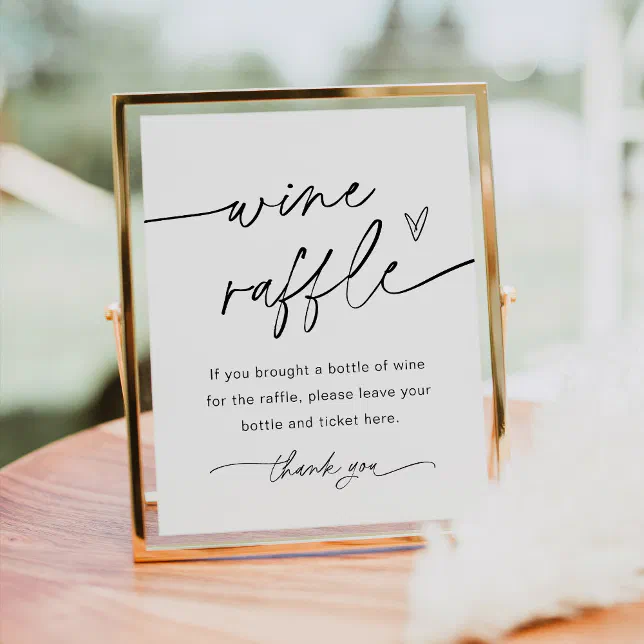 wine
raffle
If you brought a bottle of wine
for the raffle, please leave your
bottle and ticket here.
thank you